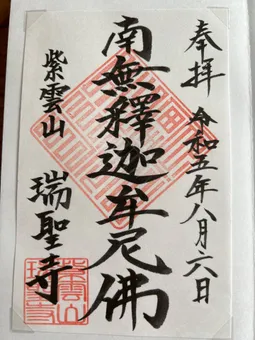 奉拝 令和五年八月六日
南無釋迦牟尼佛
紫雲山
瑞聖寺